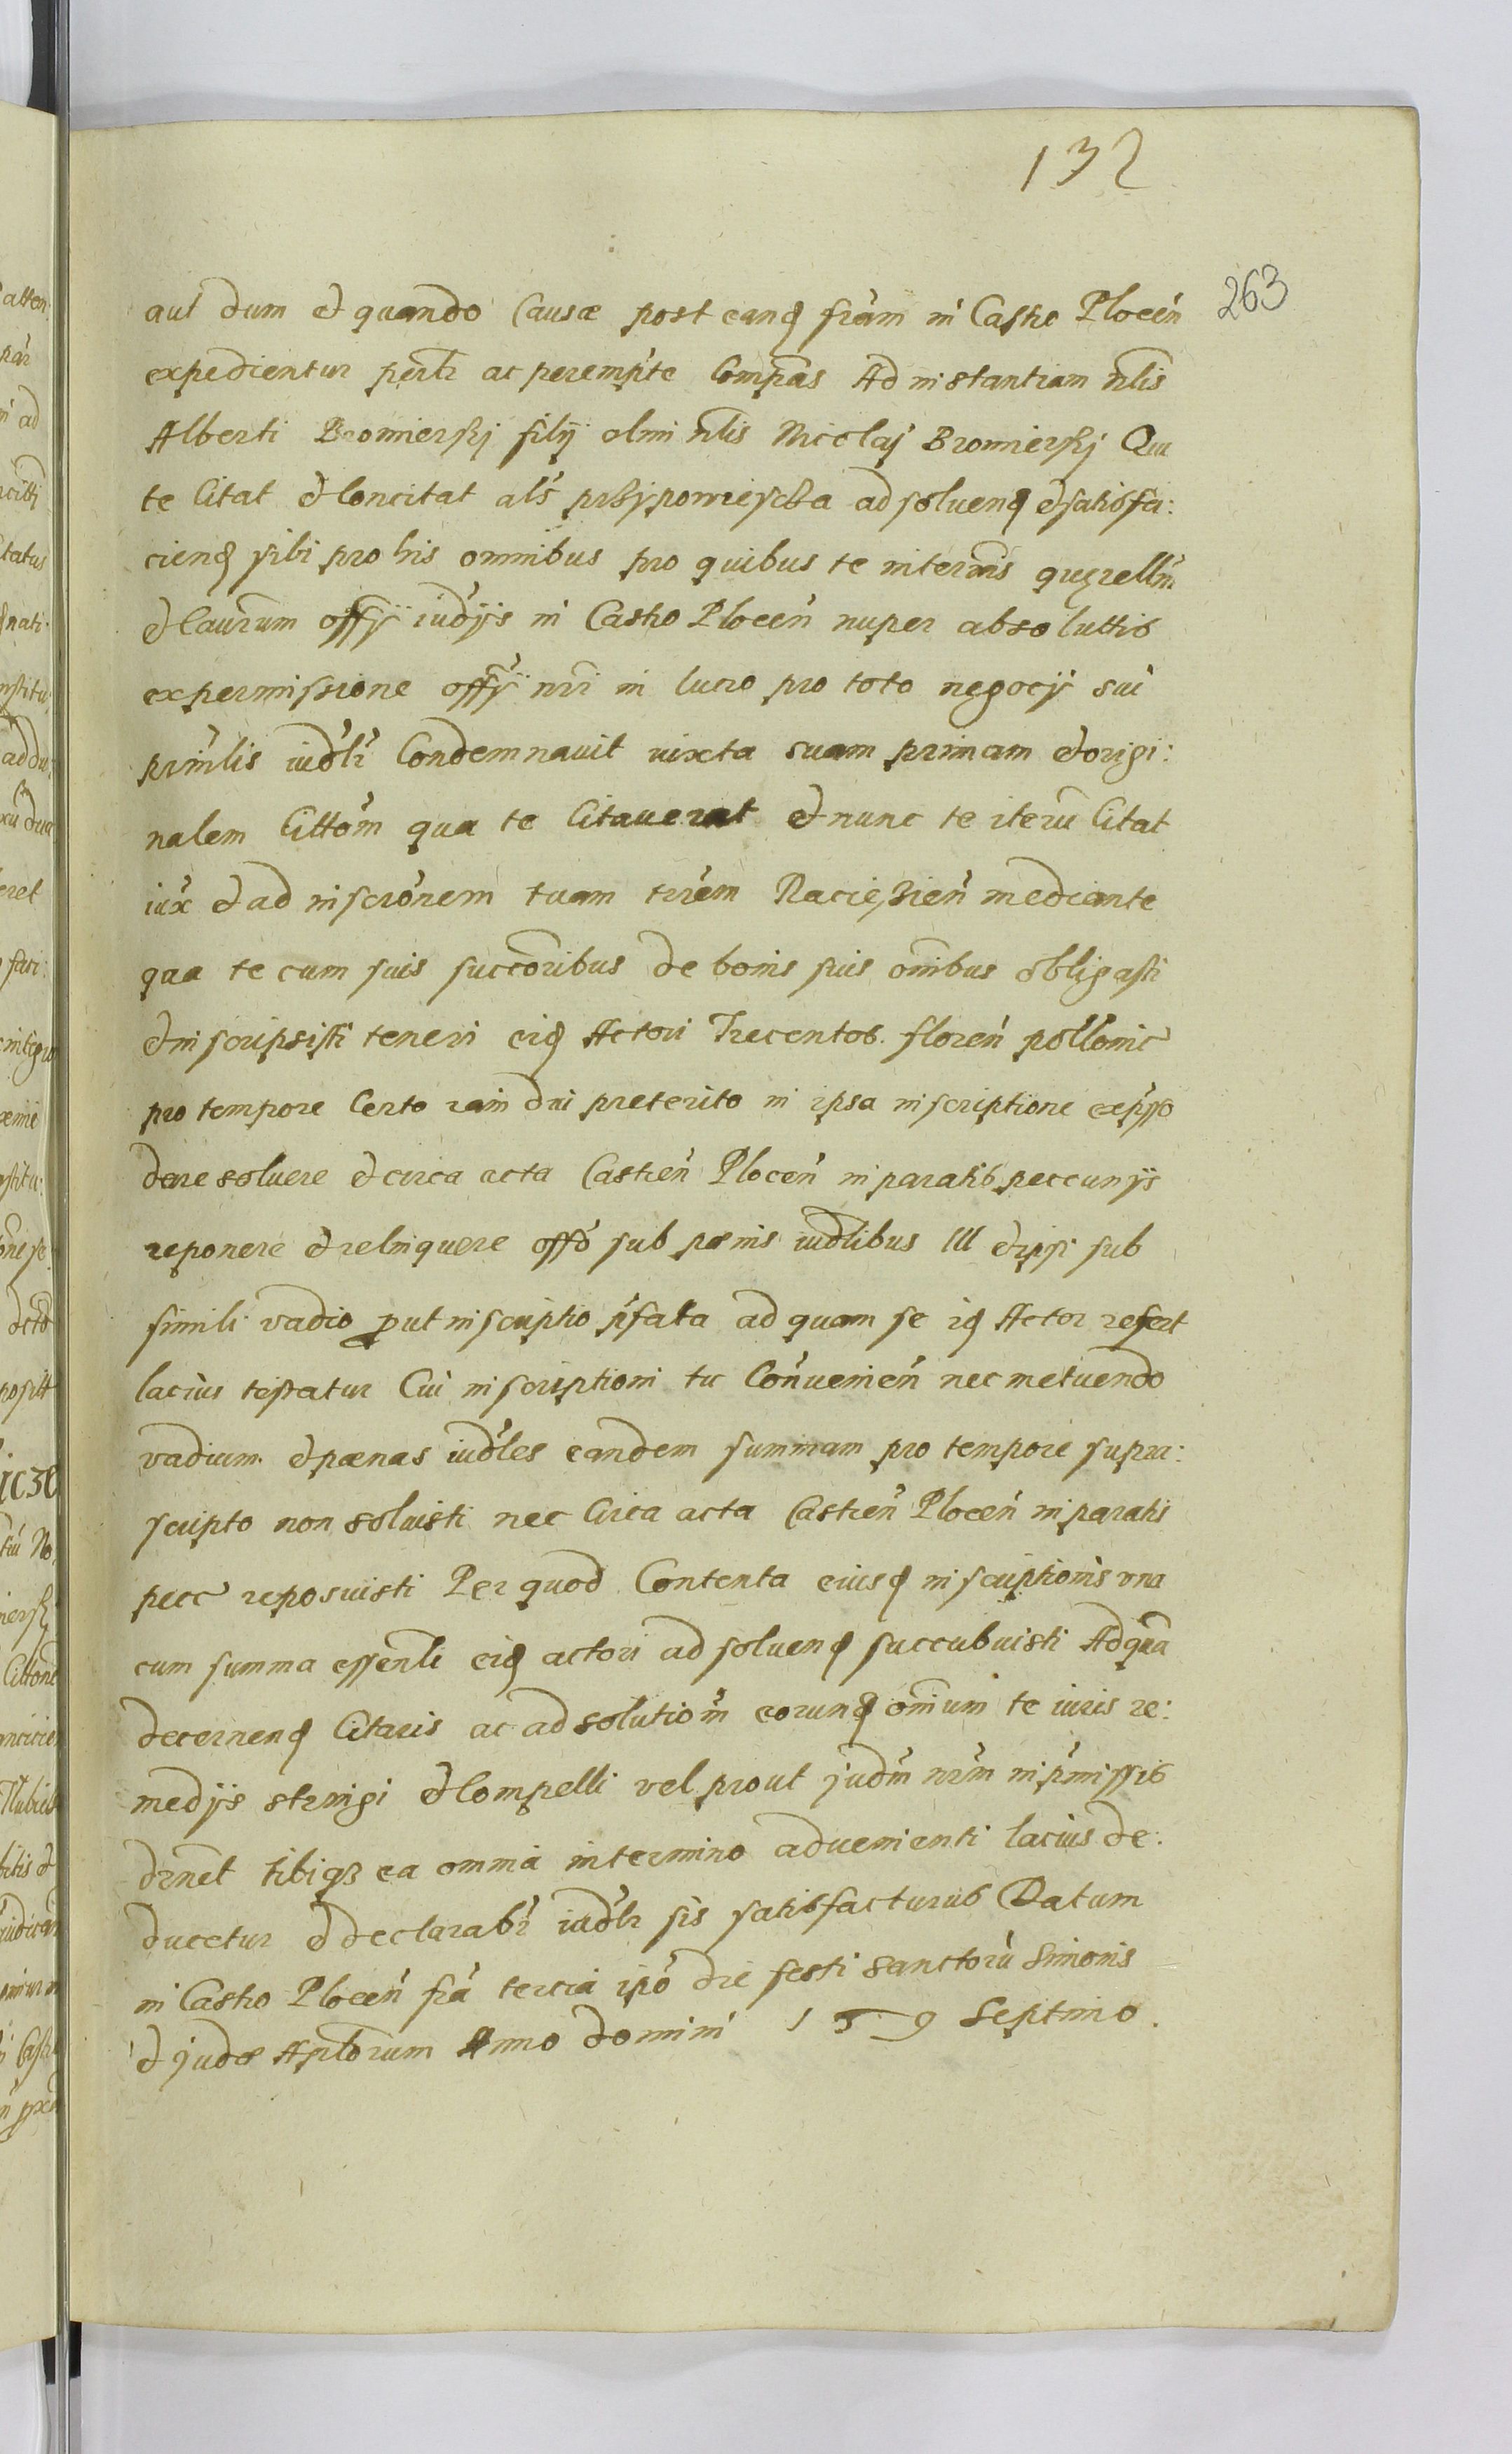 132
263
aut dum et quando Causæ post eand frãm in Castro Plocen̄
expedientur perl̃r ac perempt̃e Compãs Ad instantiam nl̃is
Alberti Bromierskj filÿ olim nl̃is Nicolaj Bromierskj Qui
te Citat et Concitat als̃ przypowiescza ad soluend et satisfa:
ciend sibi pro his omnibus pro quibus te in termis querellm̃
et Caur̃um offÿ iudÿs in Castro Plocen̄ nuper absoluttis
ex permissione offÿ nr̃i in lucro pro toto negocÿ sui
prin̄lis iudl̃r Condemnauit iuxta suam primam et origi:
nalem Citto͠m qua te Citauerat et nunc te iterū Citat
iux̃ et ad inscro͠nem tuam trr̃em Raciezien̄ mediante
qua te cum suis succõribus de bonis suis om̃ibus obligasti
et inscripsisti teneri eid Actori Trecentos floren̄ pollonic
pro tempore Certo iam diu preterito in ipsa inscriptione exp̃sso
dare soluere et circa acta Castren̄ Plocen̄ in paratis peccunÿs
reponere et relinquere offo͠ sub pœnis iudl̃ibus III et ipsi sub
simili vadio ꝓut inscriptio p̃fata ad quam se id Actor refert
lacius testatur Cui inscriptioni tu Con̄uenien̄ nec metuendo
vadium et pœnas iudl̃es eandem summam pro tempore supra:
scripto non soluisti nec Circa acta Castren̄ Plocen̄ in paratis
pecc reposuisti Per quod Contenta eiusd inscriptionis vna
cum summa essen̄li eid actori ad soluend succubuisti Ad quæ
decernend Citaris ac ad solutiom̃ eorund om̃ium te iuris re:
medÿs stringi et Compelli vel prout judm̃ nrm̃ in p̃missis
dr̃net tibiqz ea omnia in termino aduenienti lacius de:
ducetur et declarabr̃ iudl̃r sis satisfacturus Datum
in Castro Plocen̄ frã tercia ipo͠ die festi sanctorū Simonis
et judæ Aplõrum Anno domini 159 Septimo.